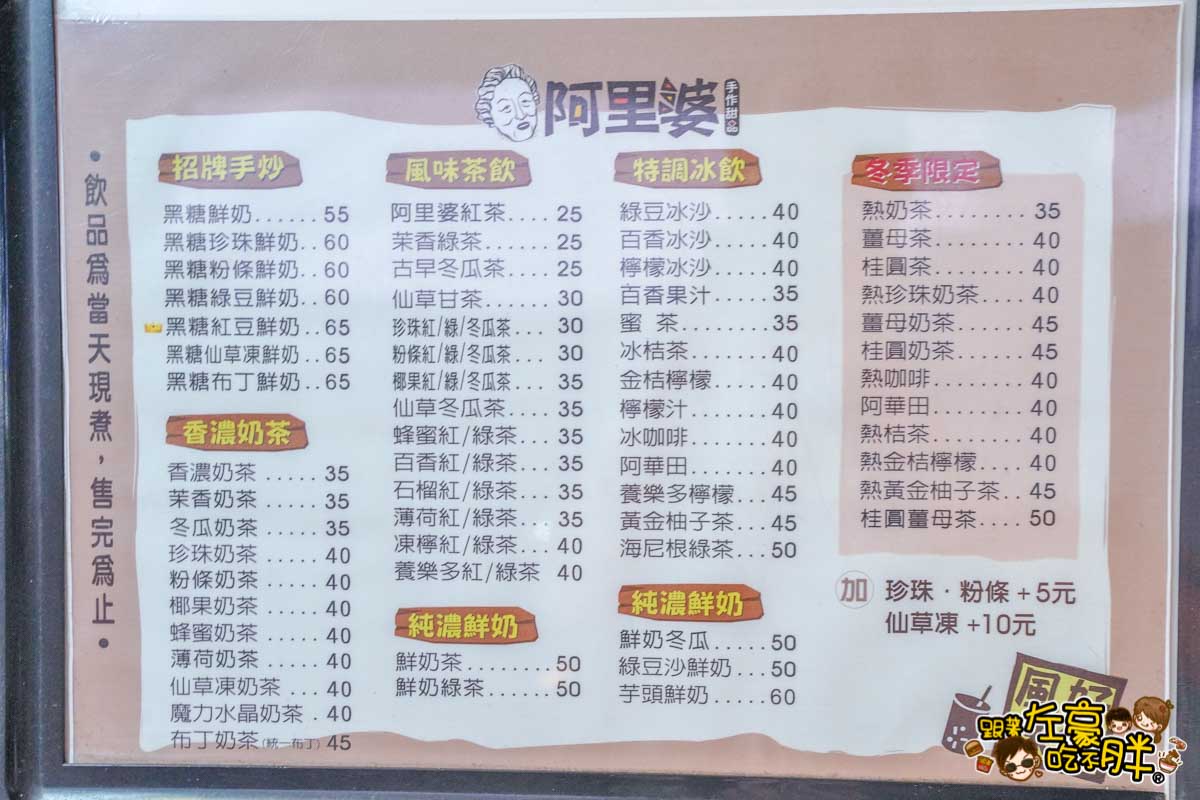 阿里婆
手作甜品
•飲品為當天現煮，售完為止•
招牌手炒
黑糖鮮奶......55
黑糖珍珠鮮奶..60
黑糖粉條鮮奶..60
黑糖綠豆鮮奶..60
黑糖紅豆鮮奶..65
黑糖仙草凍鮮奶..65
黑糖布丁鮮奶..65
香濃奶茶
香濃奶茶.....35
茉香奶茶.....35
冬瓜奶茶.....35
珍珠奶茶.....40
粉條奶茶.....40
椰果奶茶.....40
蜂蜜奶茶.....40
薄荷奶茶.....40
仙草凍奶茶...40
魔力水晶奶茶.40
布丁奶茶(統一布丁)45
風味茶飲
阿里婆紅茶....25
茉香綠茶......25
古早冬瓜茶....25
仙草甘茶......30
珍珠紅/綠/冬瓜茶...30
粉條紅/綠/冬瓜茶...30
椰果紅/綠/冬瓜茶...35
仙草冬瓜茶....35
蜂蜜紅/綠茶...35
百香紅/綠茶...35
石榴紅/綠茶...35
薄荷紅/綠茶...35
凍檸紅/綠茶...40
養樂多紅/綠茶 40
純濃鮮奶
鮮奶茶........50
鮮奶綠茶......50
特調冰飲
綠豆冰沙.....40
百香冰沙.....40
檸檬冰沙.....40
百香果汁.....35
蜜 茶.......35
冰桔茶.......40
金桔檸檬.....40
檸檬汁.......40
冰咖啡.......40
阿華田.......40
養樂多檸檬...45
黃金柚子茶...45
海尼根綠茶...50
純濃鮮奶
鮮奶冬瓜.....50
綠豆沙鮮奶...50
芋頭鮮奶.....60
冬季限定
熱奶茶........35
薑母茶........40
桂圓茶........40
熱珍珠奶茶....40
薑母奶茶......45
桂圓奶茶......45
熱咖啡........40
阿華田........40
熱桔茶........40
熱金桔檸檬....40
熱黃金柚子茶..45
桂圓薑母茶....50
加 珍珠·粉條+5元
仙草凍+10元
風好
跟著左豪吃不胖®